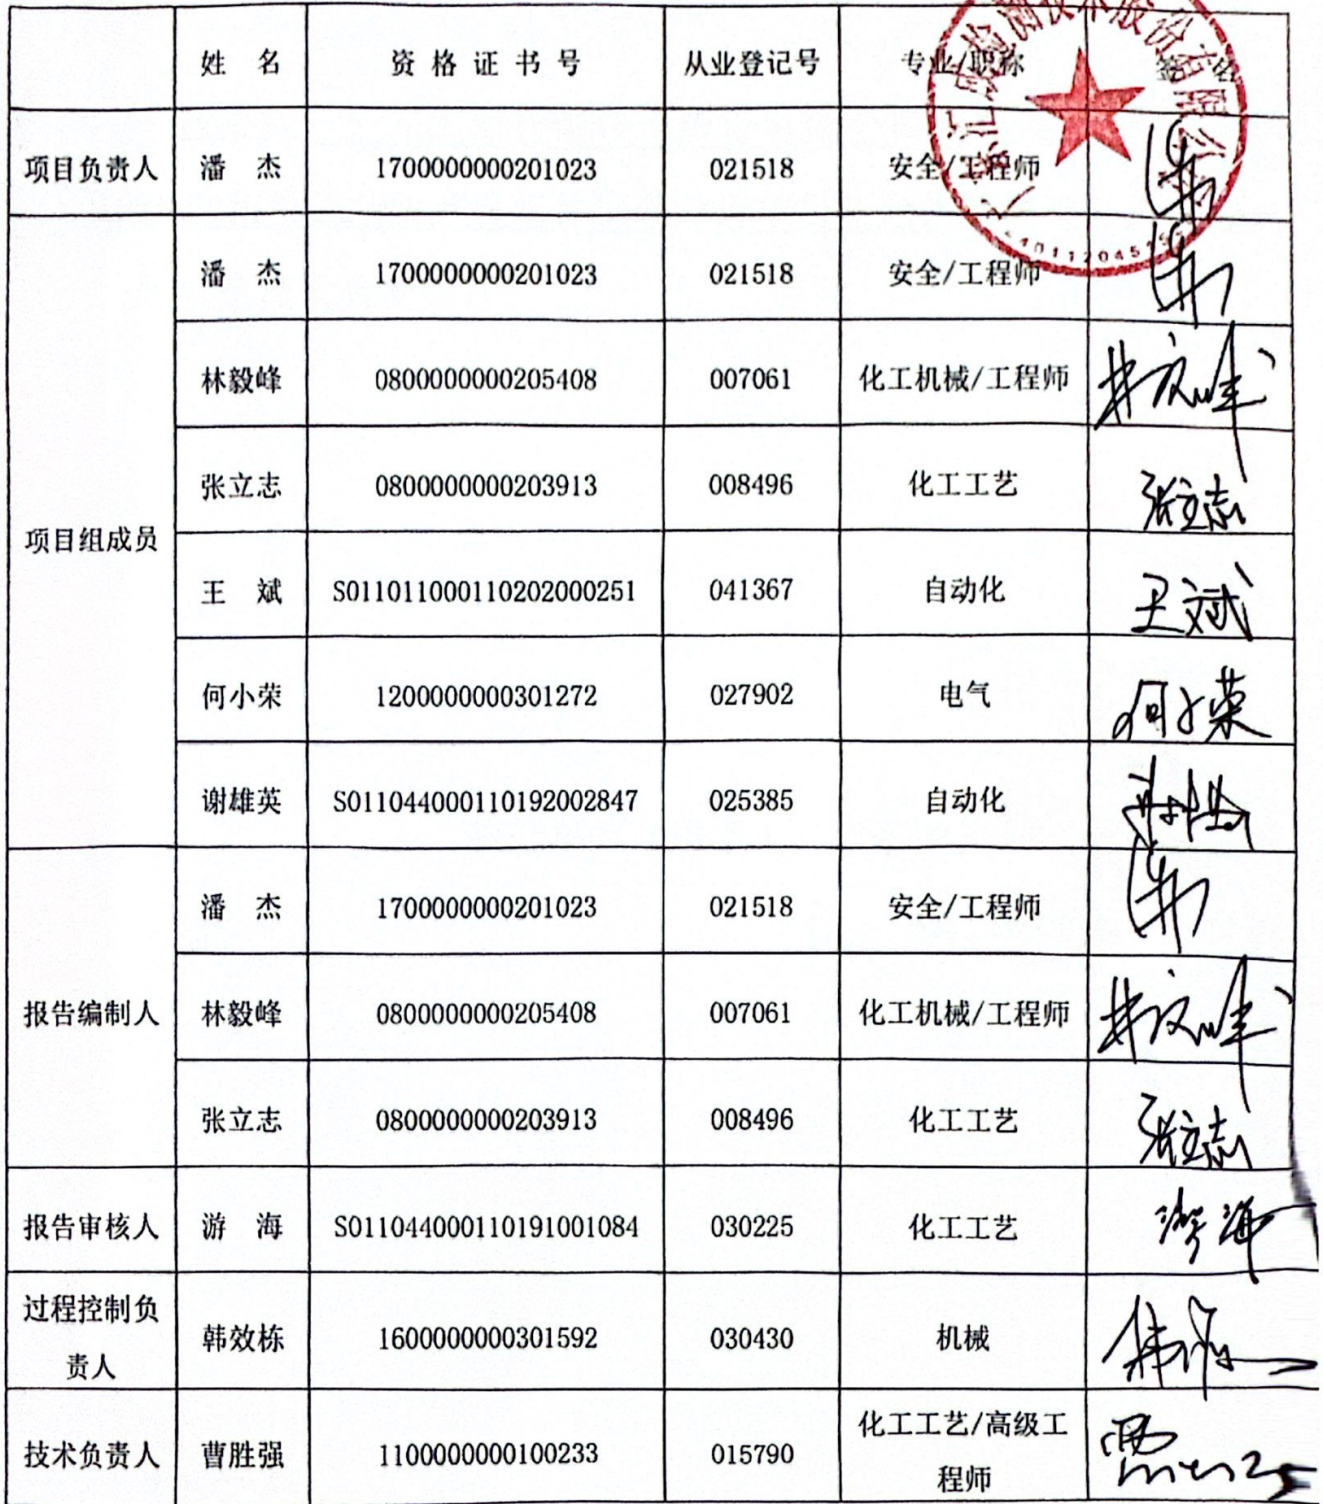 姓 名 资格证书号 从业登记号 专业/职称 签 名
项目负责人 潘 杰 1700000000201023 021518 安全/工程师
潘 杰 1700000000201023 021518 安全/工程师
林毅峰 0800000000205408 007061 化工机械/工程师 林毅峰
张立志 0800000000203913 008496 化工工艺 张立志
项目组成员
王 斌 S011011000110202000251 041367 自动化 王斌
何小荣 1200000000301272 027902 电气 何小荣
谢雄英 S011044000110192002847 025385 自动化
潘 杰 1700000000201023 021518 安全/工程师
报告编制人 林毅峰 0800000000205408 007061 化工机械/工程师 林毅峰
张立志 0800000000203913 008496 化工工艺 张立志
报告审核人 游 海 S011044000110191001084 030225 化工工艺 游海
过程控制负
责人
韩效栋 1600000000301592 030430 机械
技术负责人 曹胜强 1100000000100233 015790 化工工艺/高级工
程师
检测技术股份有限公